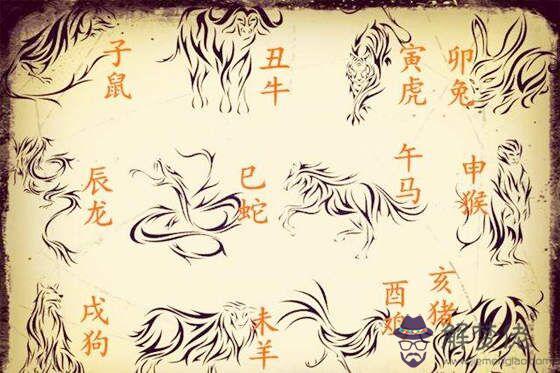 子鼠
丑牛
寅虎
卯兔
辰龙
巳蛇
午马
申猴
戌狗
未羊
酉鸡
亥猪
解夢佬
www.jiemenglao.com